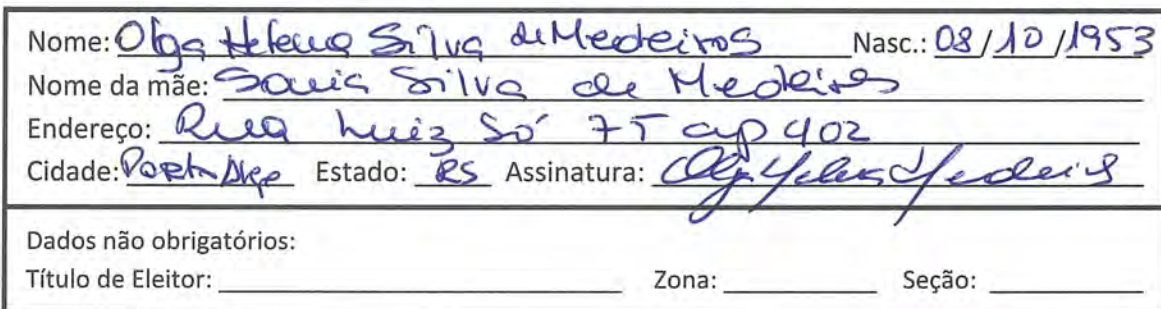 Nome: Olga Helena Silva de Medeiros Nasc.: 08/10/1953
Nome da mãe: Sonia Silva de Medeiros
Endereço: Rua Luiz Só 75 ap 402
Cidade: Porto Alge Estado: RS Assinatura: Olga Helena Medeiros
Dados não obrigatórios:
Título de Eleitor: Zona: Seção: